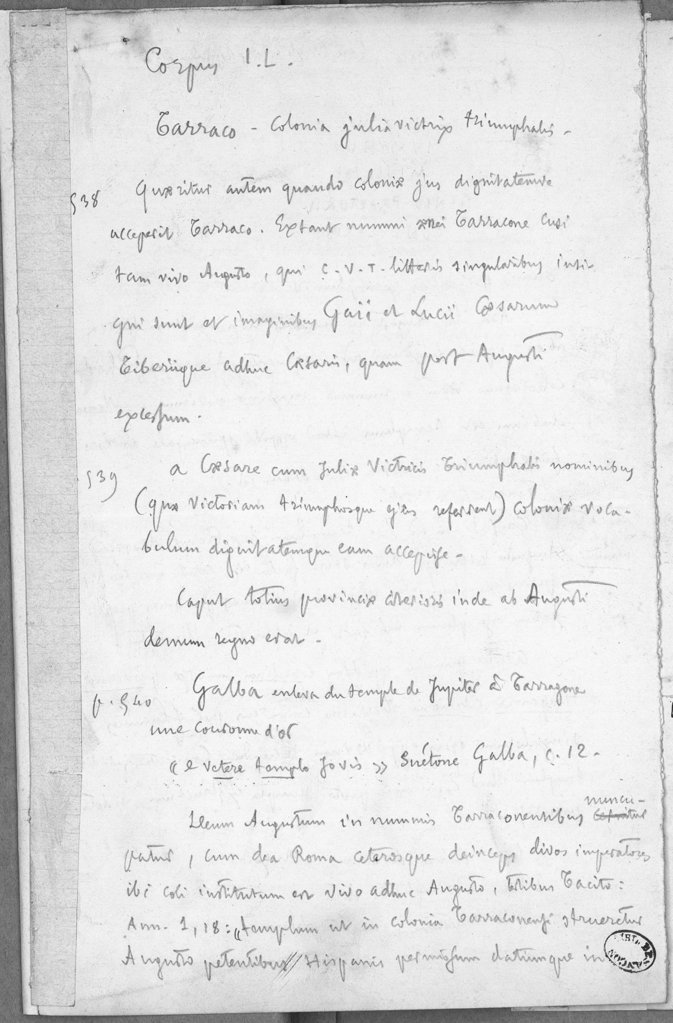 Corpus I.L.
Tarraco - Colonia julia victrix triumphalis -
538 Quæritur autem quando coloniæ jus dignitatemve
acceperit Tarraco. Extant nummi ænei Tarracone cusi
tam vivo Augusto, qui C.V.T. litteris singularibus insi-
gni sunt et imaginibus Gaii et Lucii Cæsarum
Tiberiique adhuc Cæsaris, quam post Augusti
excessum.
539 a Cæsare cum Juliæ Victricis Triumphalis nominibus
(quæ victoriam triumphosque ejus referrent) coloniæ voca-
bulum dignitatemque eam accepisse -
Caput totius provinciæ citerioris inde ab Augusti
demum regno erat -
p. 540 Galba enleva du temple de Jupiter à Tarragone
une couronne d'or
« e vetere templo Jovis » Suétone Galba, c. 12 -
Deum Augustum in nummis Tarraconensibus nuncu-
patur, cum dea Roma ceterosque deinceps divos imperatores
ibi coli institutum est vivo adhuc Augusto, testibus Tacito:
Ann. 1, 18: "templum ut in colonia Tarraconensi strueretur
Augusto petentibus Hispanis permissum datumque in